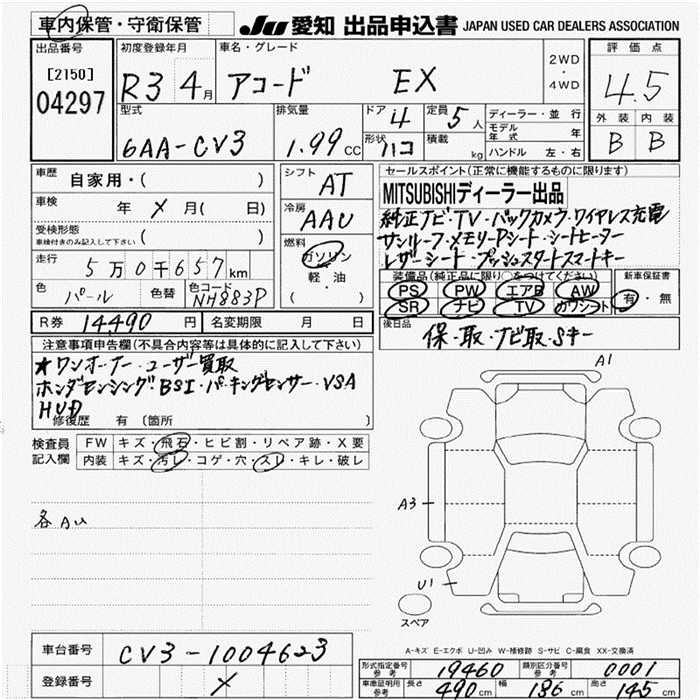 車内保管・守衛保管 JU愛知 出品申込書 JAPAN USED CAR DEALERS ASSOCIATION
出品番号 初度登録年月 車名・グレード 2WD・4WD 評価点
[2150] 04297 R3 4月 アコード EX 4.5
型式 排気量 ドア 4 定員 5人 ディーラー・並行 外装 内装
6AA-CV3 1.99CC 形状 ハコ 積載 kg モデル年式 年 B B
ハンドル 左・右
車歴 自家用・( ) シフト AT セールスポイント(正常に機能するものに限ります)
車検 年 メ月( 日) 冷房 AAU MITSUBISHIディーラー出品
受検形態 ( ) 純正ナビ・TV・バックカメラ・ワイヤレス充電
車検付きのみ記入して下さい 燃料 サンルーフ・メモリーPシート・シートヒーター
走行 5万0千657km ガソリン レザーシート・プッシュスタートスマートキー
軽・油 装備品(純正品に限り○をつけてください) 新車保証書
色 パール 色替 色コード NH883P ( ) PS PW エアB AW 有・無
SR ナビ TV カワシート
R券 14490円 名変期限 月 日 後日品 保・取・ナビ取・Sキー
注意事項申告欄(不具合内容等は具体的に記入して下さい)
★ワンオーナー・ユーザー買取
ホンダセンシング・BSI・パーキングセンサー・VSA
HUD
修復歴 有 〔箇所 〕
検査員 FW キズ・飛石・ヒビ割・リペア跡・X要
記入欄 内装 キズ・汚レ・コゲ・穴・スレ・キレ・破レ
A1
各AU
A3
U1
スペア
A-キズ E-エクボ U-凹み W-補修跡 S-サビ C-腐食 XX-交換済
車台番号 CV3-1004623
登録番号 メ
形式指定番号 参考 19460 類別区分番号 参考 0001
車庫証明用 参考 長さ 490cm 幅 186cm 高さ 145cm